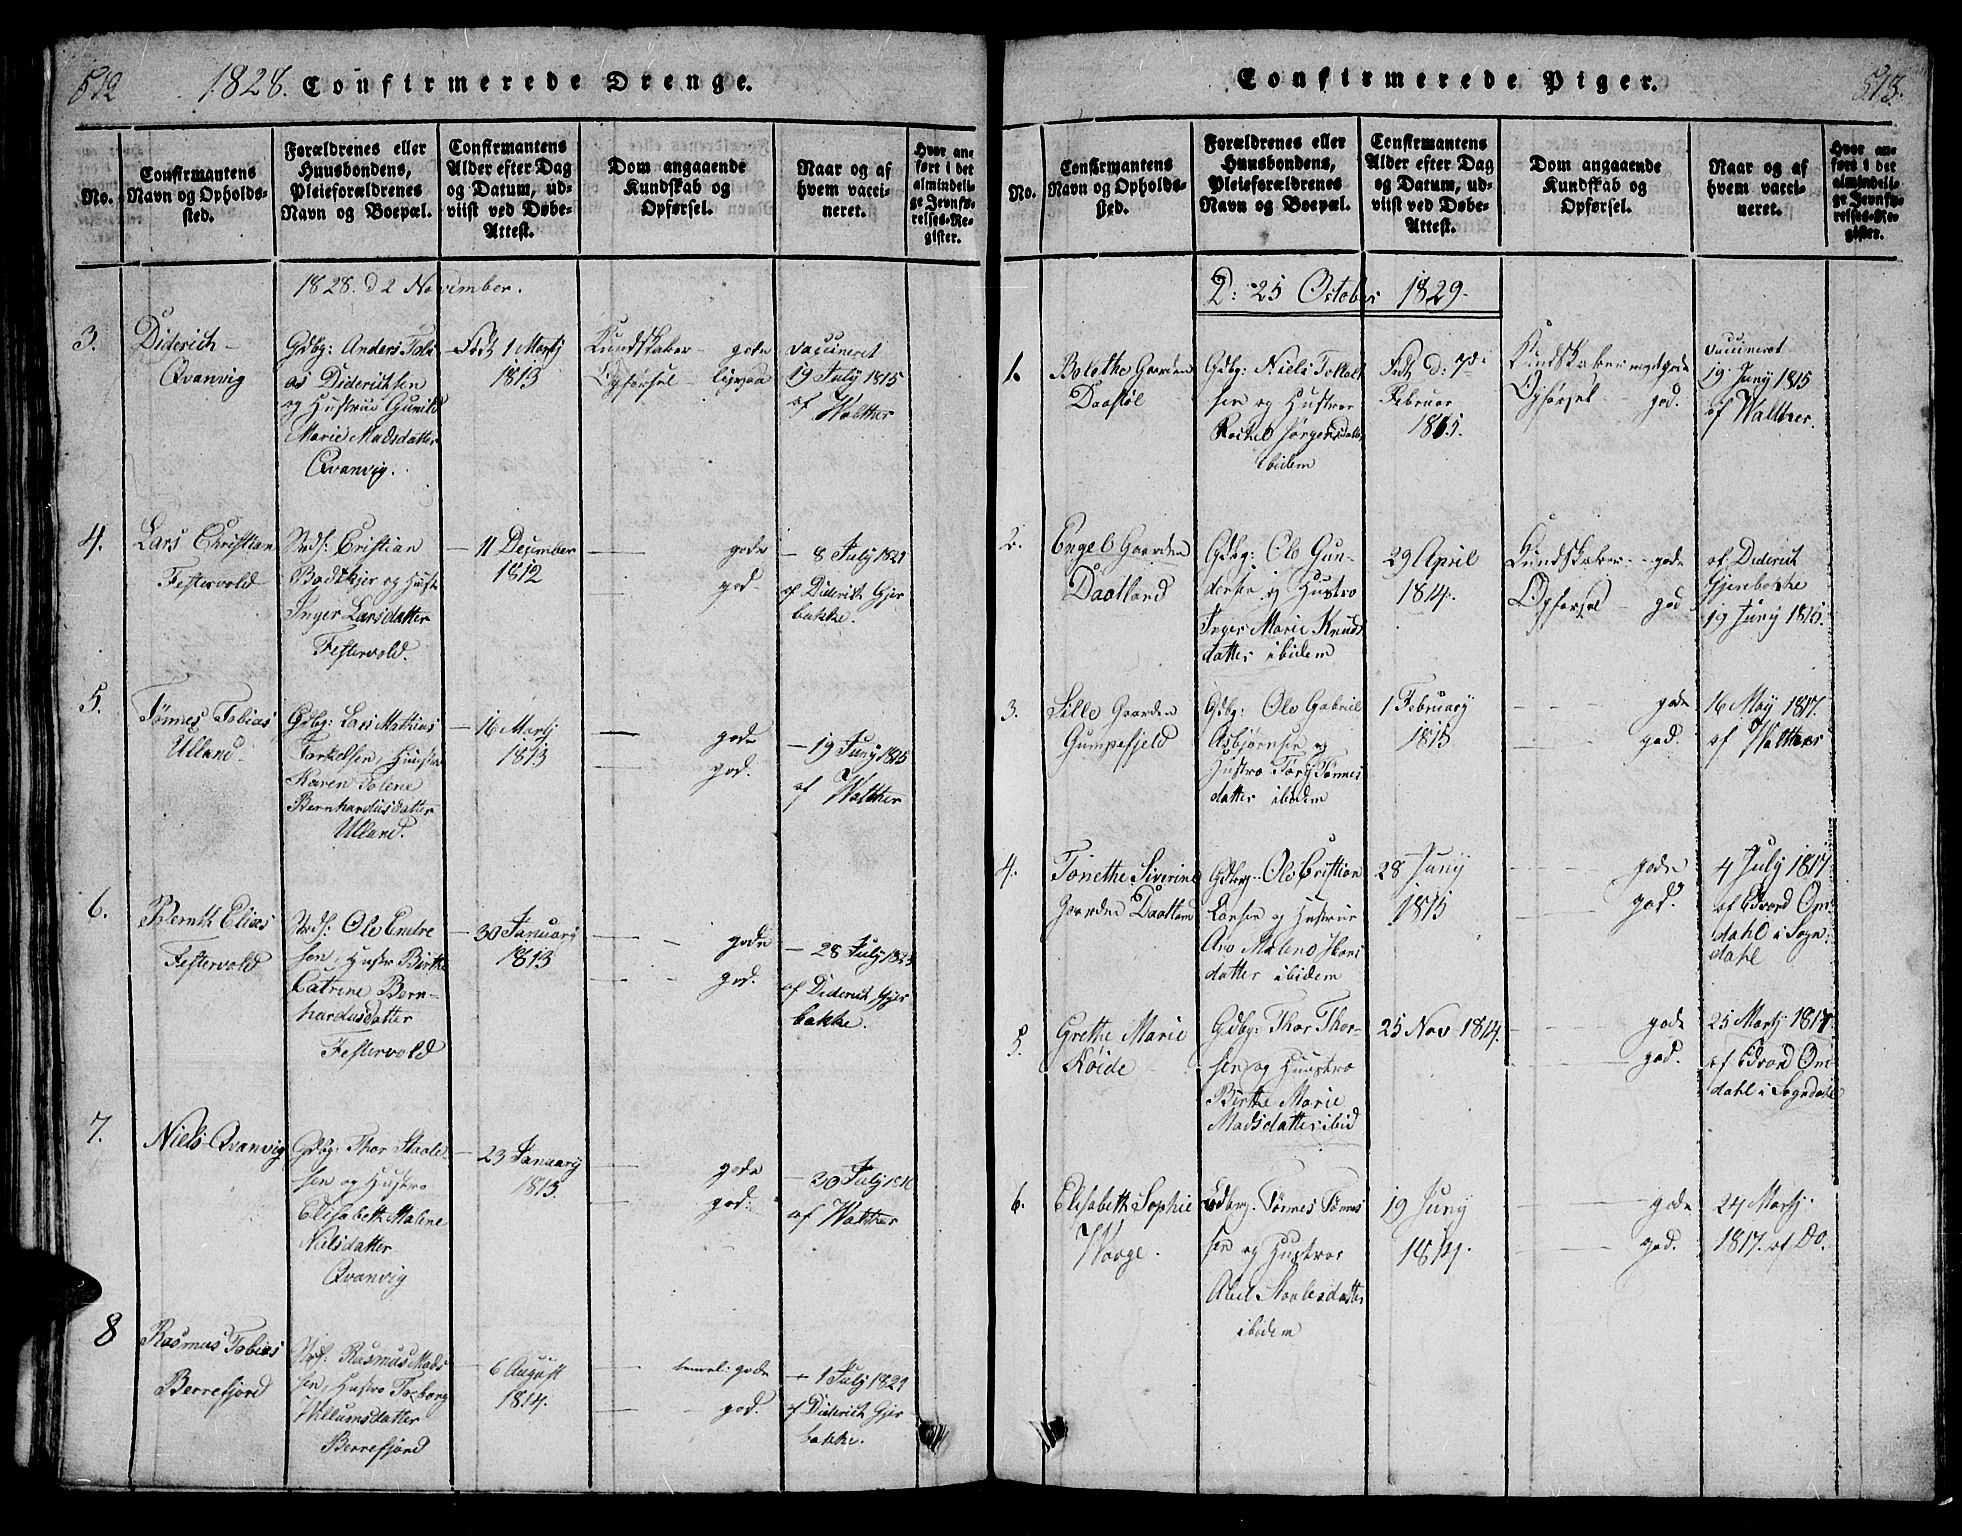 512
1828. Confirmerede Drenge.
No.
Confirmantens
Navn og Opholds-
sted.
Forældrenes eller
Huusbondens,
Pleieforældrenes
Navn og Boepæl.
Confirmantens
Alder efter Dag
og Datum, ud-
viist ved Døbe-
Attest.
Dom angaaende
Kundskab og
Opførsel.
Naar og af
hvem vacci-
neret.
Hvor an-
ført i det
almindeli-
ge Jevnfø-
relses-Re-
gister.
1828. d 2 November.
3.
Diderich
Qvanvig
Gdbg: Anders Tobi
as Diderichsen
og Hustrue Gunild
Marie Madsdatter
Qvanvig.
Født 1 Martj
1813
Kundskaber gode
Opførsel ligesaa
vaccineret
19 July 1815
af Walther
4.
Lars Christian
Festervold
Cristian
Bødtkjer og Hustr
Inger Larsdatter
Festervold.
– 11 December
1812
gode
god.
– 8 July 1821
af Diderich Gjer
bakke.
5.
Tönnes Tobias
Ulland.
Gdbg: Lars Mathias
Torkelsen, Huustr
Karen Tolene
Bernhardusdatter
Ulland.
– 16 Martj
1813
gode
god.
– 19 Juny 1815
af Walther
6.
Bernth Elias
Festervold
Ole Endre
sen, Hustr Birthe
Catrine Bern-
hardusdatter
Festervold
– 30 January
1813
gode
god.
– 28 July 1823
af Diderich Gjer
bakke.
7.
Niels Qvanvig
Gdbg: Thor Staale-
sen og Hustro
Elisabeth Malene
Nilsdatter
Qvanvig
– 23 January
1813.
gode
god.
– 30 July 1816
af Walther
8
Rasmus Tobias
Berrefjord
Rasmus Mads
sen, Hustro Torborg
Willumsdatter
Berrefjord
6 August
1814.
gode
god.
– 1 July 1821
af Diderich Gjer
bakke.
Confirmerede Piger.
513.
No.
Confirmantens
Navn og Opholds-
sted.
Forældrenes eller
Huusbondens,
Pleieforældrenes
Navn og Boepæl.
Confirmantens
Alder efter Dag
og Datum, ud-
viist ved Døbe-
Attest.
Dom angaaende
Kundskab og
Opførsel.
Naar og af
hvem vacci-
neret.
Hvor an-
ført i det
almindeli-
ge Jevnfø-
relses-Re-
gister.
D: 25 October 1829.
1.
Bolethe Gaarden
Daastøl
Gdbg: Niels Tollak
sen og Hustroe
Rachel Jörgensdatter
ibidem
Født d: 7de
Februar
1815.
Kundskaber meget gode
Opførsel – god.
vaccineret
19 Juny 1815
af Walther.
2.
Engel Gaarden
Daatland
Gdbg: Ole Gun-
dersen og Hustro
Inger Marie Knuds
datter ibidem
29 April
1814.
Kundskaber – gode
Opførsel – god
af Diderich
Gjerebakke
19 Juny 1815.
3.
Sille Gaarden
Gumpefjeld
Gdbg: Ole Gabriel
Asbjörnsen og
Hustro Tori Tönnes
datter ibidem
1 February
1815
gode
god.
16 May 1817.
af Walther
4.
Tonethe Siverine
Gaarden Daatland
Gdbrg. Ole Cristian
Larsen og Hustrue
Malene
datter ibidem
28 Juny
1815
gode
god.
4 July 1817
af Edvard Om
dahl i Sogn-
dahl
5.
Grethe Marie
Röide
Gdbg: Thor Thor-
sen og Huustro
Birthe Marie
Madsdatter ibid
25 Nov 1814.
gode
god.
25 Martj 1817
af Edvard Om
dahl i Sogndahl
6.
Elisabeth Sophie
Waage.
Gdbrg. Tönnes Tönnes
sen og Hustroe
Abel Staalesdatter
ibidem
19 Juny
1814.
gode
god.
24 Martj
1817. af Do.